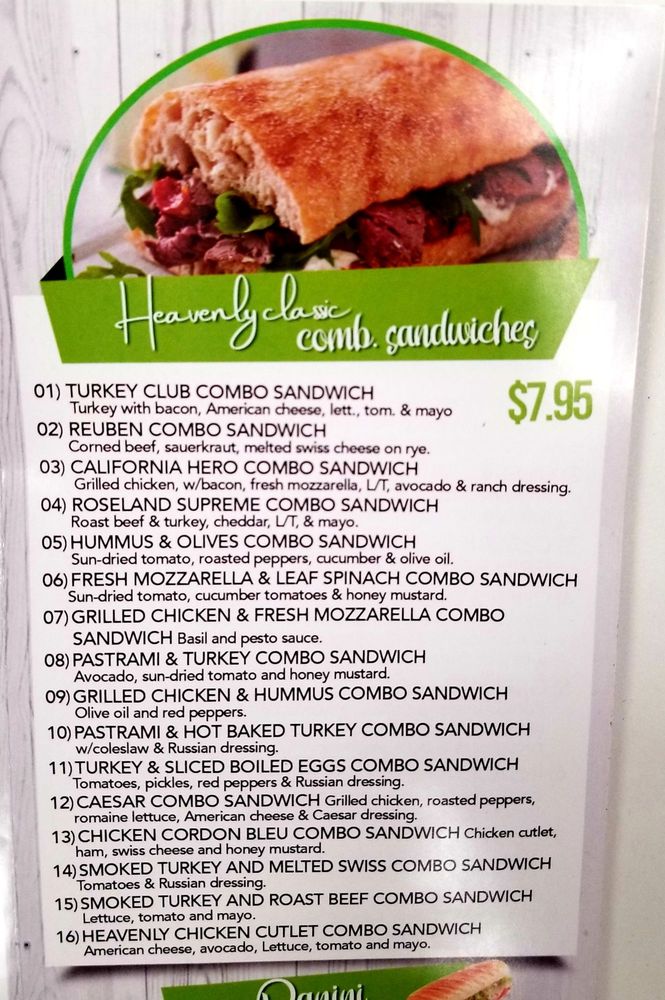 Heavenly classic
comb. sandwiches
$7.95
01) TURKEY CLUB COMBO SANDWICH
Turkey with bacon, American cheese, lett., tom. & mayo
02) REUBEN COMBO SANDWICH
Corned beef, sauerkraut, melted swiss cheese on rye.
03) CALIFORNIA HERO COMBO SANDWICH
Grilled chicken, w/bacon, fresh mozzarella, L/T, avocado & ranch dressing.
04) ROSELAND SUPREME COMBO SANDWICH
Roast beef & turkey, cheddar, L/T, & mayo.
05) HUMMUS & OLIVES COMBO SANDWICH
Sun-dried tomato, roasted peppers, cucumber & olive oil.
06) FRESH MOZZARELLA & LEAF SPINACH COMBO SANDWICH
Sun-dried tomato, cucumber tomatoes & honey mustard.
07) GRILLED CHICKEN & FRESH MOZZARELLA COMBO
SANDWICH Basil and pesto sauce.
08) PASTRAMI & TURKEY COMBO SANDWICH
Avocado, sun-dried tomato and honey mustard.
09) GRILLED CHICKEN & HUMMUS COMBO SANDWICH
Olive oil and red peppers.
10) PASTRAMI & HOT BAKED TURKEY COMBO SANDWICH
w/coleslaw & Russian dressing.
11) TURKEY & SLICED BOILED EGGS COMBO SANDWICH
Tomatoes, pickles, red peppers & Russian dressing.
12) CAESAR COMBO SANDWICH Grilled chicken, roasted peppers,
romaine lettuce, American cheese & Caesar dressing.
13) CHICKEN CORDON BLEU COMBO SANDWICH Chicken cutlet,
ham, swiss cheese and honey mustard.
14) SMOKED TURKEY AND MELTED SWISS COMBO SANDWICH
Tomatoes & Russian dressing.
15) SMOKED TURKEY AND ROAST BEEF COMBO SANDWICH
Lettuce, tomato and mayo.
16) HEAVENLY CHICKEN CUTLET COMBO SANDWICH
American cheese, avocado, Lettuce, tomato and mayo.
Panini